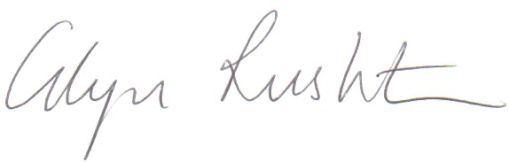 Alyn Rushton